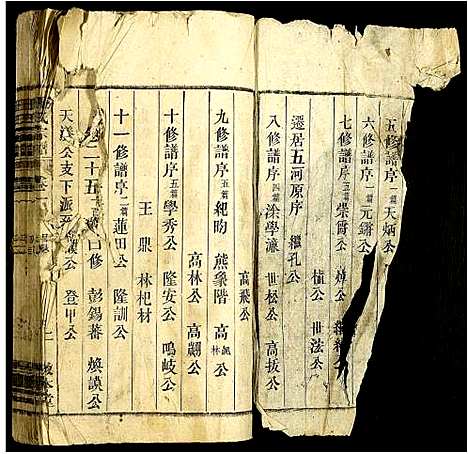 五修譜序一篇 天炳公
六修譜序一篇 元鏘公
七修譜序五篇 崇霄公 煒公
植公 世法公
遷居五河原序 繼孔公
八修譜序四篇 涂學濂 世松公 高拔公
高飛公
九修譜序五篇 紀昀 熊象階 高楓林
高林公 高翽公
十修譜序五篇 學秀公 隆安公 鳴岐公
王鼎 林杞材
十一修譜序二篇 蓮田公 隆訓公
二十五 口修 彭錫蕃 煥謨公
天漢公支下派 登甲公
敦本堂